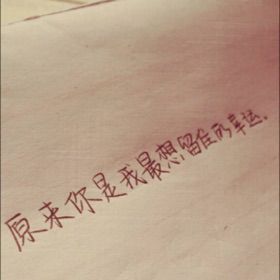 原来你是我最想留住的幸运.